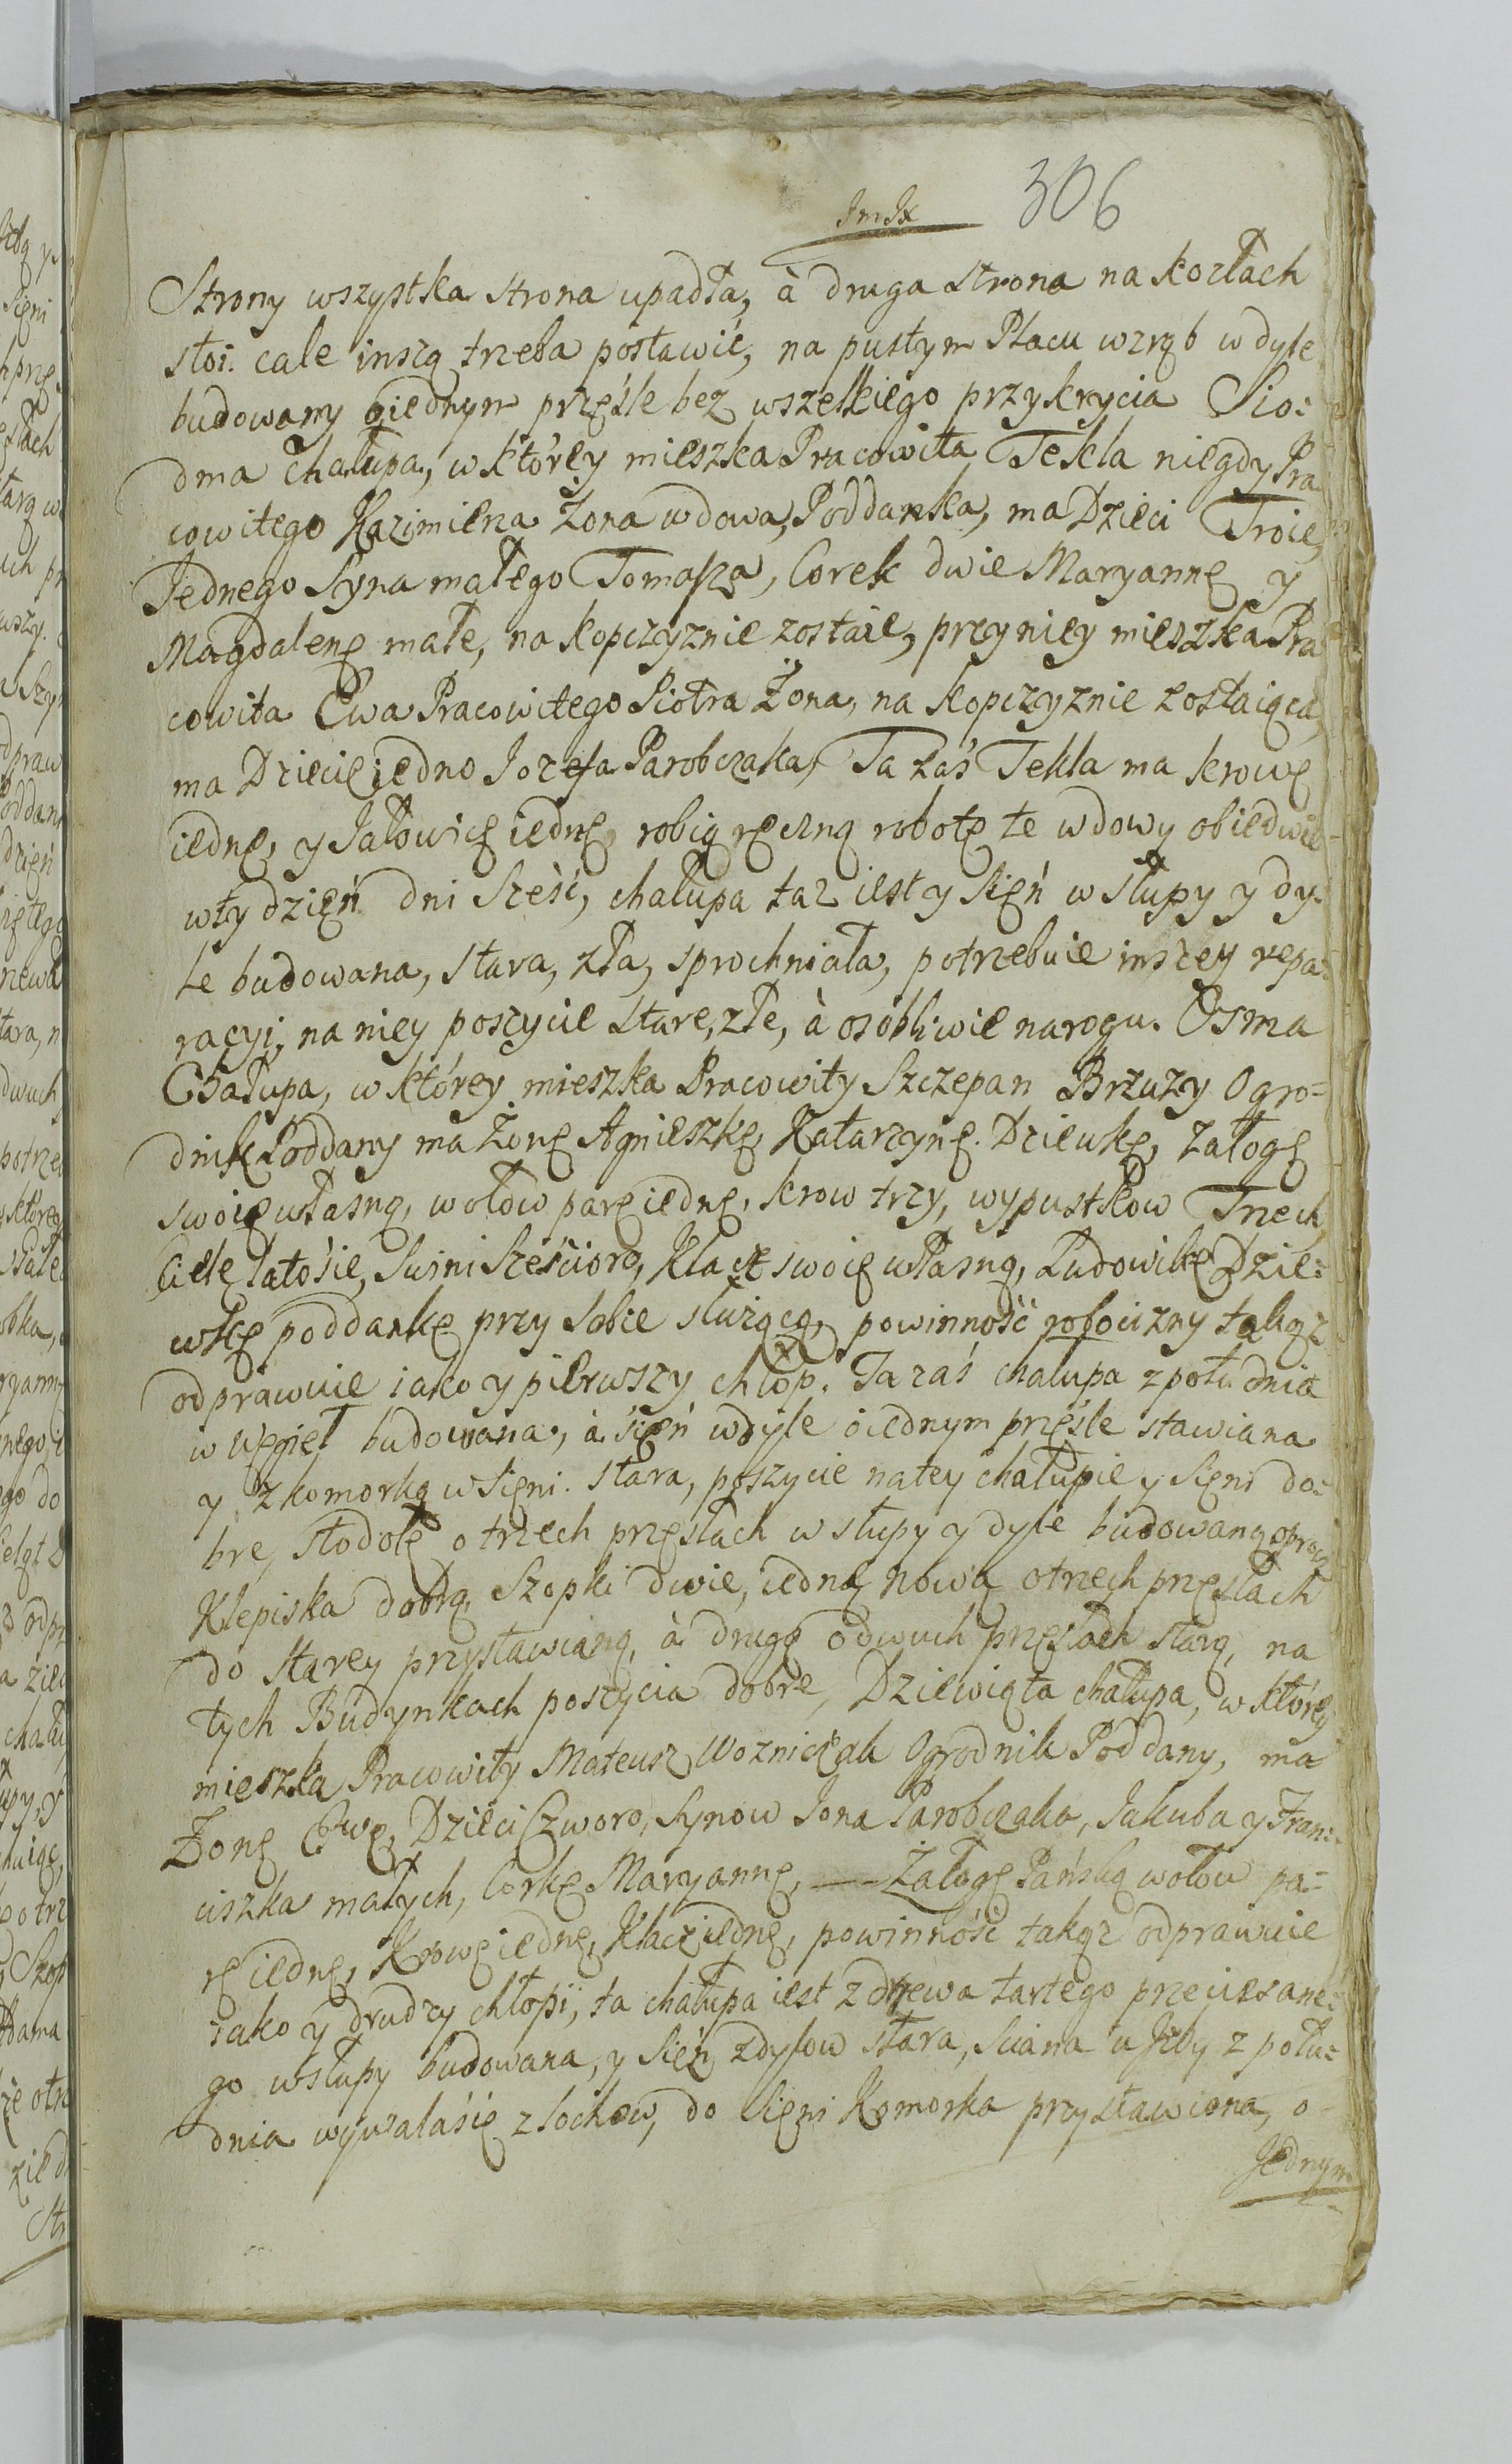 306
Strony wszystka strona upadła, à druga strona na kozłach
stoi. cale inszą trzeba postawić, na pustym Placu wzrąb w dyle
budowany oiednym przęśle bez wszelkiego przykrycia Sio=
dma Chałupa, w którey mieszka Pracowita Tekla niegdy Pra
cowitego Kazimierza Zona wdowa, Poddanka, ma Dzieci Troie,
Jednego Syna małego Tomasza, Corek dwie Maryannę y
Magdalenę małe, na kopczyznie zostaie, przy niey mieszka Pra
cowita Ewa Pracowitego Piotra Żona, na kopczyznie zostaiąca,
ma Dziecię iedno Jozefa Parobczaka, Ta zaś Tekla ma krowę
iednę, y Jałowicę iednę, robią ręczną robotę te wdowy obiedwie
w tydzień dni sześć, chałupa taz iest y Sień w słupy y dy=
le budowana, stara, zła, sprochniała, potrzebuie inszey repa=
racyi, na niey poszycie stare, złe, à osobliwie narogu. Osma
Chałupa, w którey mieszka Pracowity Szczepan Brzuzy Ogro=
dnik Poddany ma Żonę Agnieszkę, Katarzynę Dziewkę, Załogę
swoię własną, wołow parę iednę, krow trzy, wypustkow Trzech,
Cielę latosie, Swini sześcioro, Klacz swoię własną, Ludowikę Dzie=
wkę poddankę przy sobie służącą, powinność robocizny takąż
odprawuie iako y pierwszy chłop. Ta zaś chałupa z południa
w węgieł budowana, à sień w dyle o iednym przęśle stawiana
y z komorką w Sieni. stara, poszycie na tey chałupie y Sieni do=
bre, stodołę o trzech przęsłach w słupy y dyle budowaną oprocz
Klepiska dobrą, Szopki dwie, iedną nową o trzech przęsłach
do starey przystawianą, à drugą o dwuch przęsłach starą, na
tych Budynkach poszycia dobre, Dziewiąta chałupa, w którey
mieszka Pracowity Mateusz Wozniczak Ogrodnik Poddany, ma
Żonę Ewę, Dzieci Czworo, Synow Jona Parobczaka, Jakuba y Fran=
ciszka małych, Corkę Maryannę, Załogę Pańską wołow pa=
rę iednę, Krowę iednę, Klacz iednę, powinność takąż odprawuie
iako y drudzy chłopi, ta chałupa iest z drzewa tartego przeciesane=
go w słupy budowana, y Sień z dylow stara, sciana u Jzby z połu=
dnia wywalasię z sochow, do Sieni Komorka przystawiona, o=
Jednym